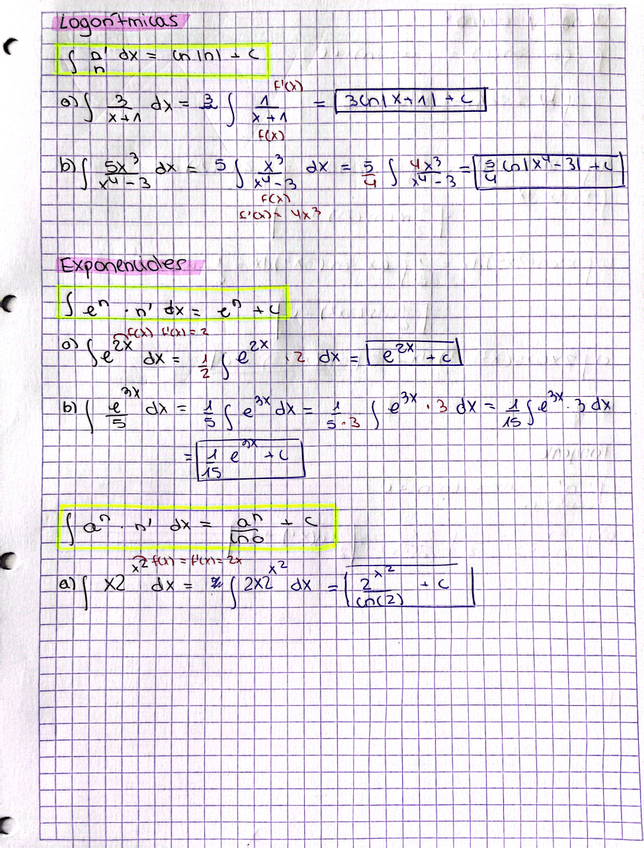 Logarítmicas
∫ n'/n dx = ln |n| + c
a) ∫ 3/(x+1) dx = 3 ∫ 1/(x+1) = 3 ln |x+1| + c
f'(x)
f(x)
b) ∫ 5x³/(x⁴-3) dx = 5 ∫ x³/(x⁴-3) dx = 5/4 ∫ 4x³/(x⁴-3) = 5/4 ln |x⁴-3| + c
f(x)
f'(x) = 4x³
Exponenciales
∫ eⁿ · n' dx = eⁿ + c
f(x) f'(x) = 2
a) ∫ e^2x dx = 1/2 ∫ e^2x · 2 dx = e^2x + c
b) ∫ e^3x/5 dx = 1/5 ∫ e^3x dx = 1/(5·3) ∫ e^3x · 3 dx = 1/15 ∫ e^3x · 3 dx
= 1/15 e^3x + c
∫ aⁿ · n' dx = aⁿ/ln a + c
x2 f(x) = f'(x) = 2x
a) ∫ x2 dx = ∫ 2x2^x² dx = 2^x²/ln(2) + c